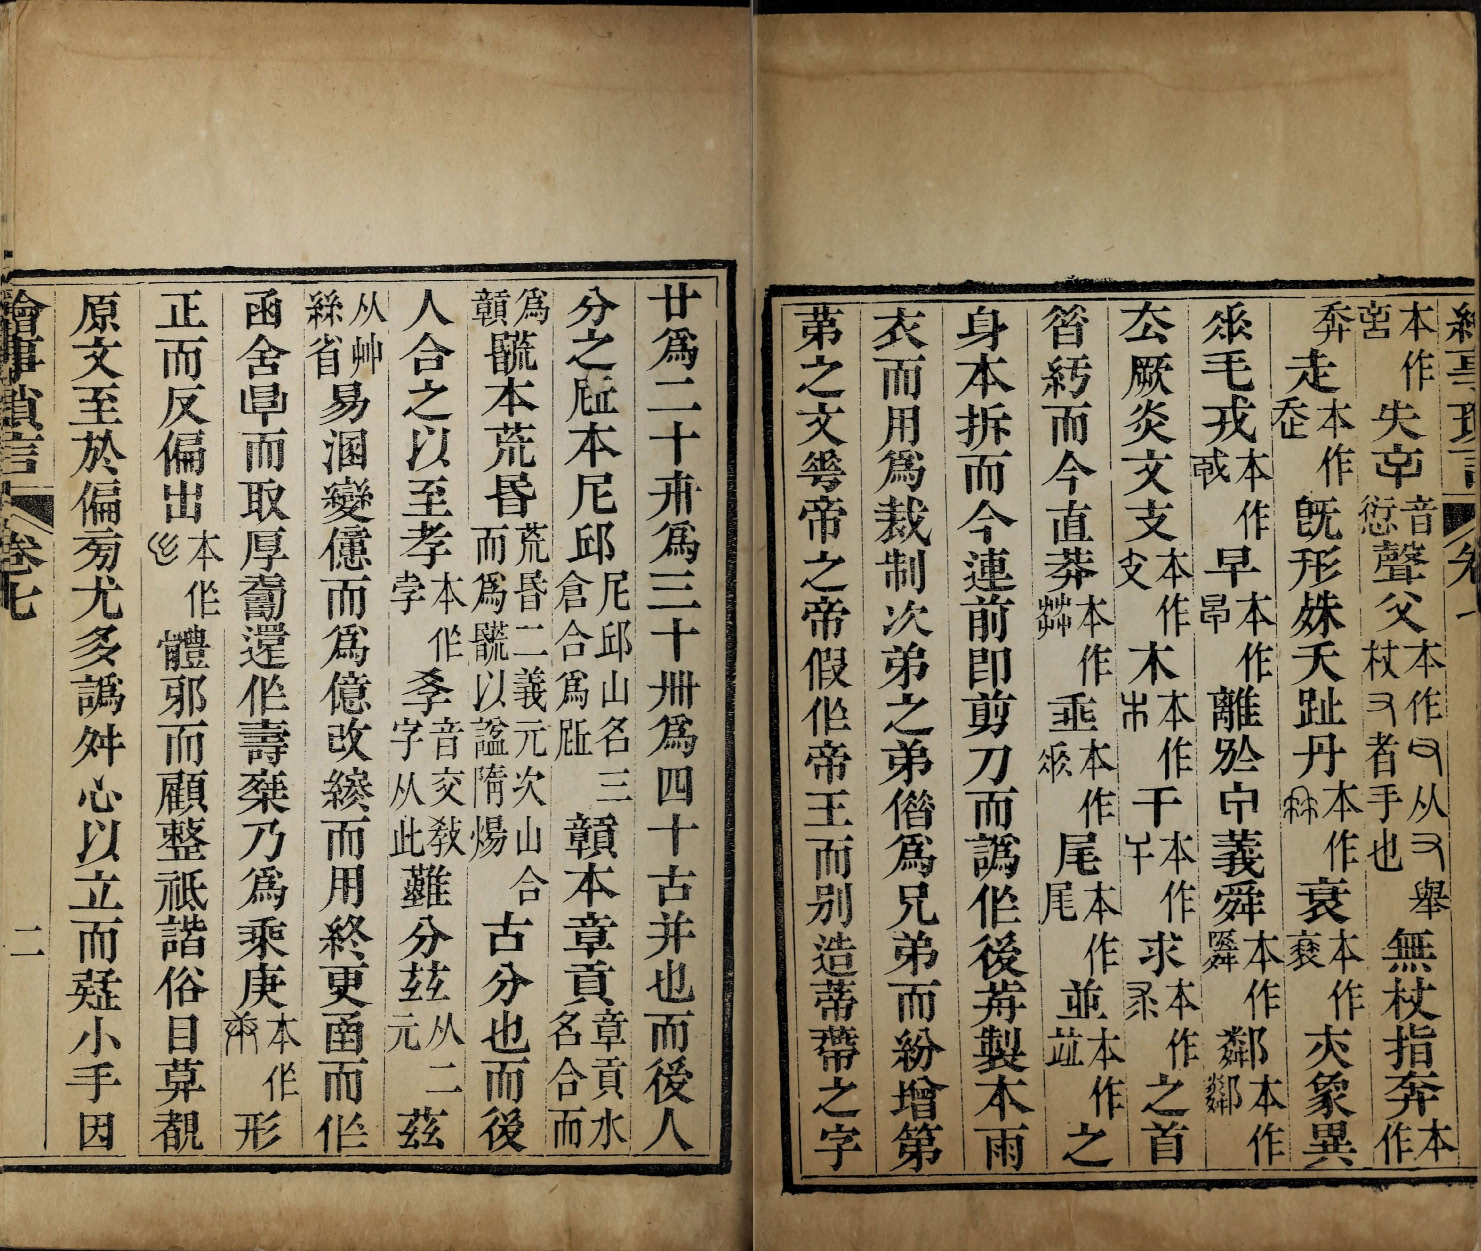 繪事瑣言 卷七
本作𡧱失䇂音愆聲父本作从又舉杖又者手也無杖指奔本作
𠦪走本作旣形姝夭趾丹本作衰本作𠅤亦象異
毛戎本作𢦦早本作離於𠂢義舜本作䑞鄰本作鄰
厺厥炎文支本作攴木本作朩干本作求本作之首
筲紆而今直莽本作埀本作尾本作尾並本作竝之
身本拆而今連前卽剪刀而譌作後苒製本雨
衣而用爲裁制次弟之弟偺爲兄弟而紛增第
苐之文咢帝之帝假作帝王而别造蒂䙗之字
廿爲二十卅爲三十卌爲四十古并也而後人
分之𡰱本尼邱尼邱山名三倉合爲𡰱贑本章貢章貢水名合而
爲贑巟本荒昬荒昬二義元次山合而爲以諡隋煬古分也而後
人合之以至孝本作孛㝊音交敎字从此虇分玆从二元茲
从艸絲省易溷變億而爲億改縿而用終更圅而作
函舍而取厚還作壽桀乃爲乘庚本作形
正而反偏出本作體邪而顧整祗諧俗目莫覩
原文至於偏旁尤多譌舛心以立而疑小手因
繪事瑣言 卷七 二